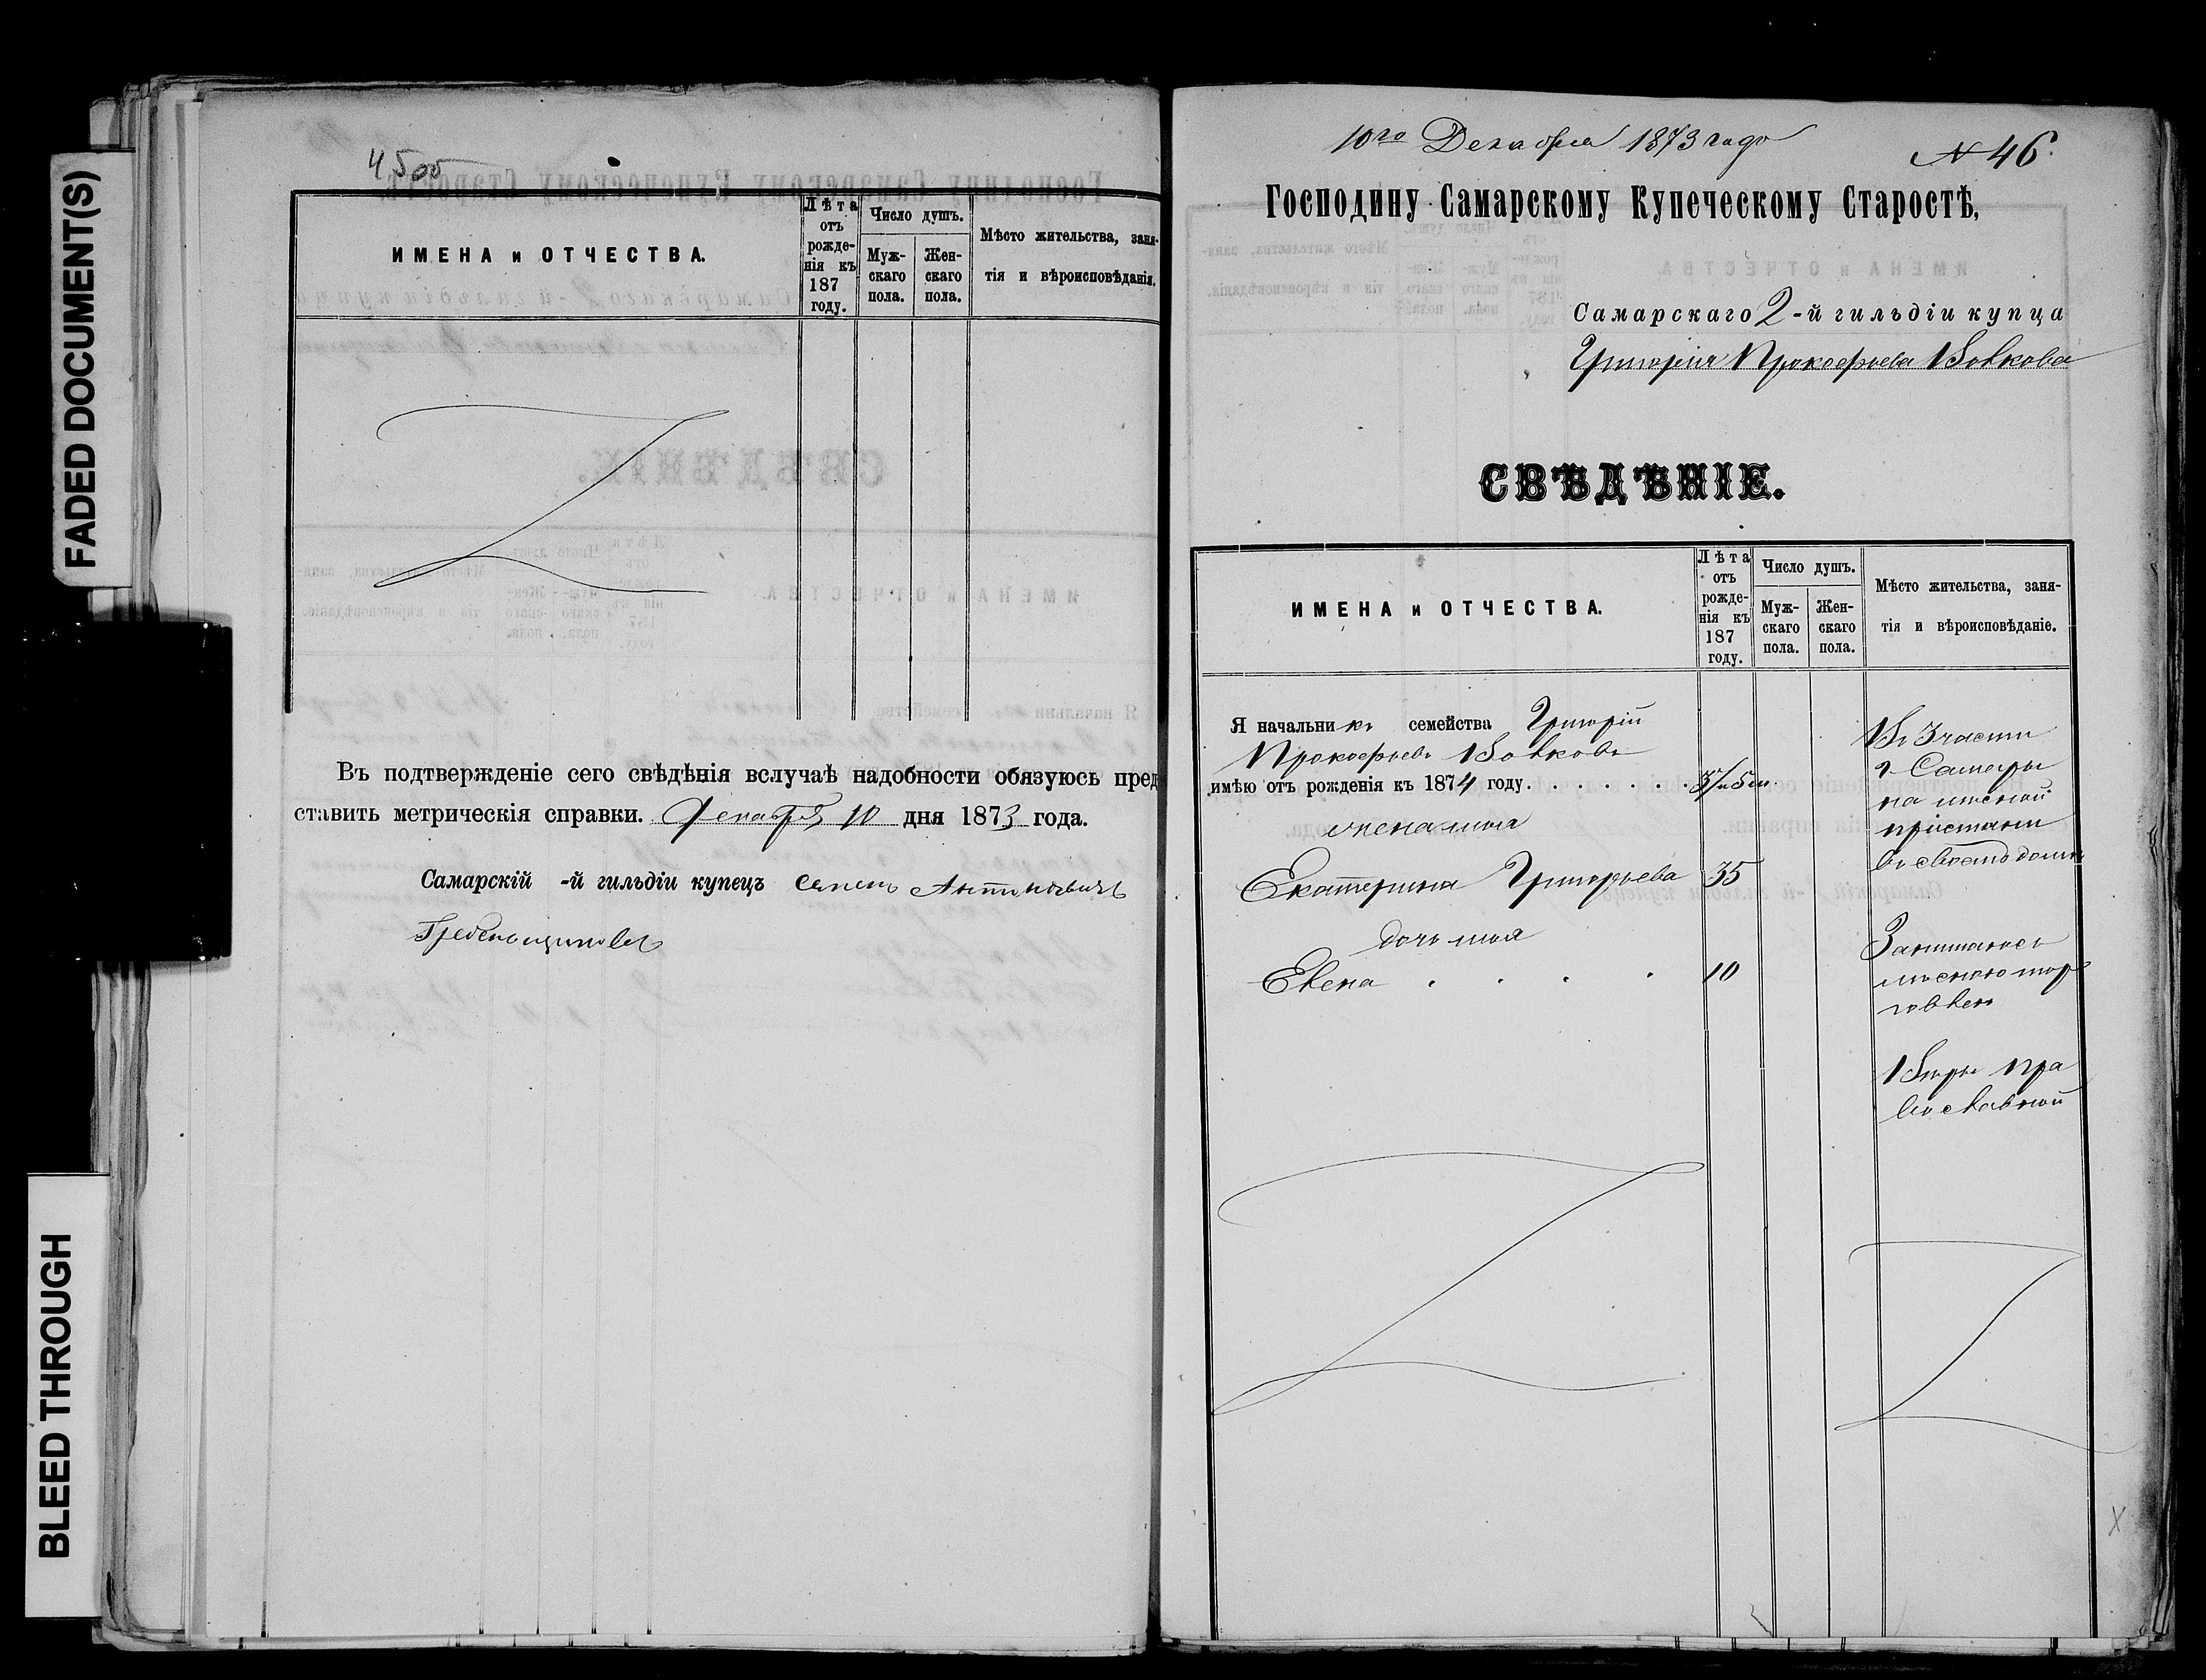 FADED DOCUMENT(S)
BLEED THROUGH
ИМЕНА и ОТЧЕСТВА.
Лѣта отъ рожде-нія къ 187 году.
Число душъ.
Муж-скаго пола.
Жен-скаго пола.
Мѣсто жительства, заня-
тія и вѣроисповѣданія.
Въ подтвержденіе сего свѣдѣнія вслучаѣ надобности обязуюсь пред
ставить метрическія справки. Декабря 10 дня 1873 года.
Самарскій -й гильдіи купецъ
10го Декабря 1873 года
№ 46
Господину Самарскому Купеческому Старостѣ,
Самарскаго 2-й гильдіи купца
Григорія Прокофьева Волкова
СВѢДѢНІЕ.
ИМЕНА и ОТЧЕСТВА.
Лѣта отъ рожде-нія къ 187 году.
Число душъ.
Муж-скаго пола.
Жен-скаго пола.
Мѣсто жительства, заня-
тія и вѣроисповѣданіе.
Я начальникъ семейства Григорій
Прокофьевъ Волковъ
имѣю отъ рожденія къ 1874 году
жена моя
Екатерина Григорьева 35
дочь моя
Елена 10
Въ 3 части
г Самары
на
пристани
въ своемъ домѣ
Занимаюсь
тор
говлею
Вѣры пра
вославной